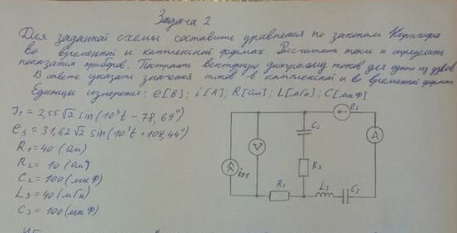 Задача 2
Для заданной схемы составить уравнения по законам Кирхгофа
во временной и комплексной формах. Рассчитать токи и определить
показания приборов. Построить векторную диаграмму токов для одного из узлов
В ответе указать значения токов в комплексной и во временной форме
Единицы измерения: e[В]; i[А]; R[Ом]; L[мГн]; C[мкФ]
J₁ = 2,55√2 sin(10³t − 78,69°)
e₃ = 31,62√2 sin(10³t + 108,44°)
R₁ = 40 (Ом)
R₂ = 10 (Ом)
C₂ = 100 (мкФ)
L₃ = 40 (мГн)
C₃ = 100 (мкФ)
e₃
C₂
A
V
R₂
R₁
L₃
C₃